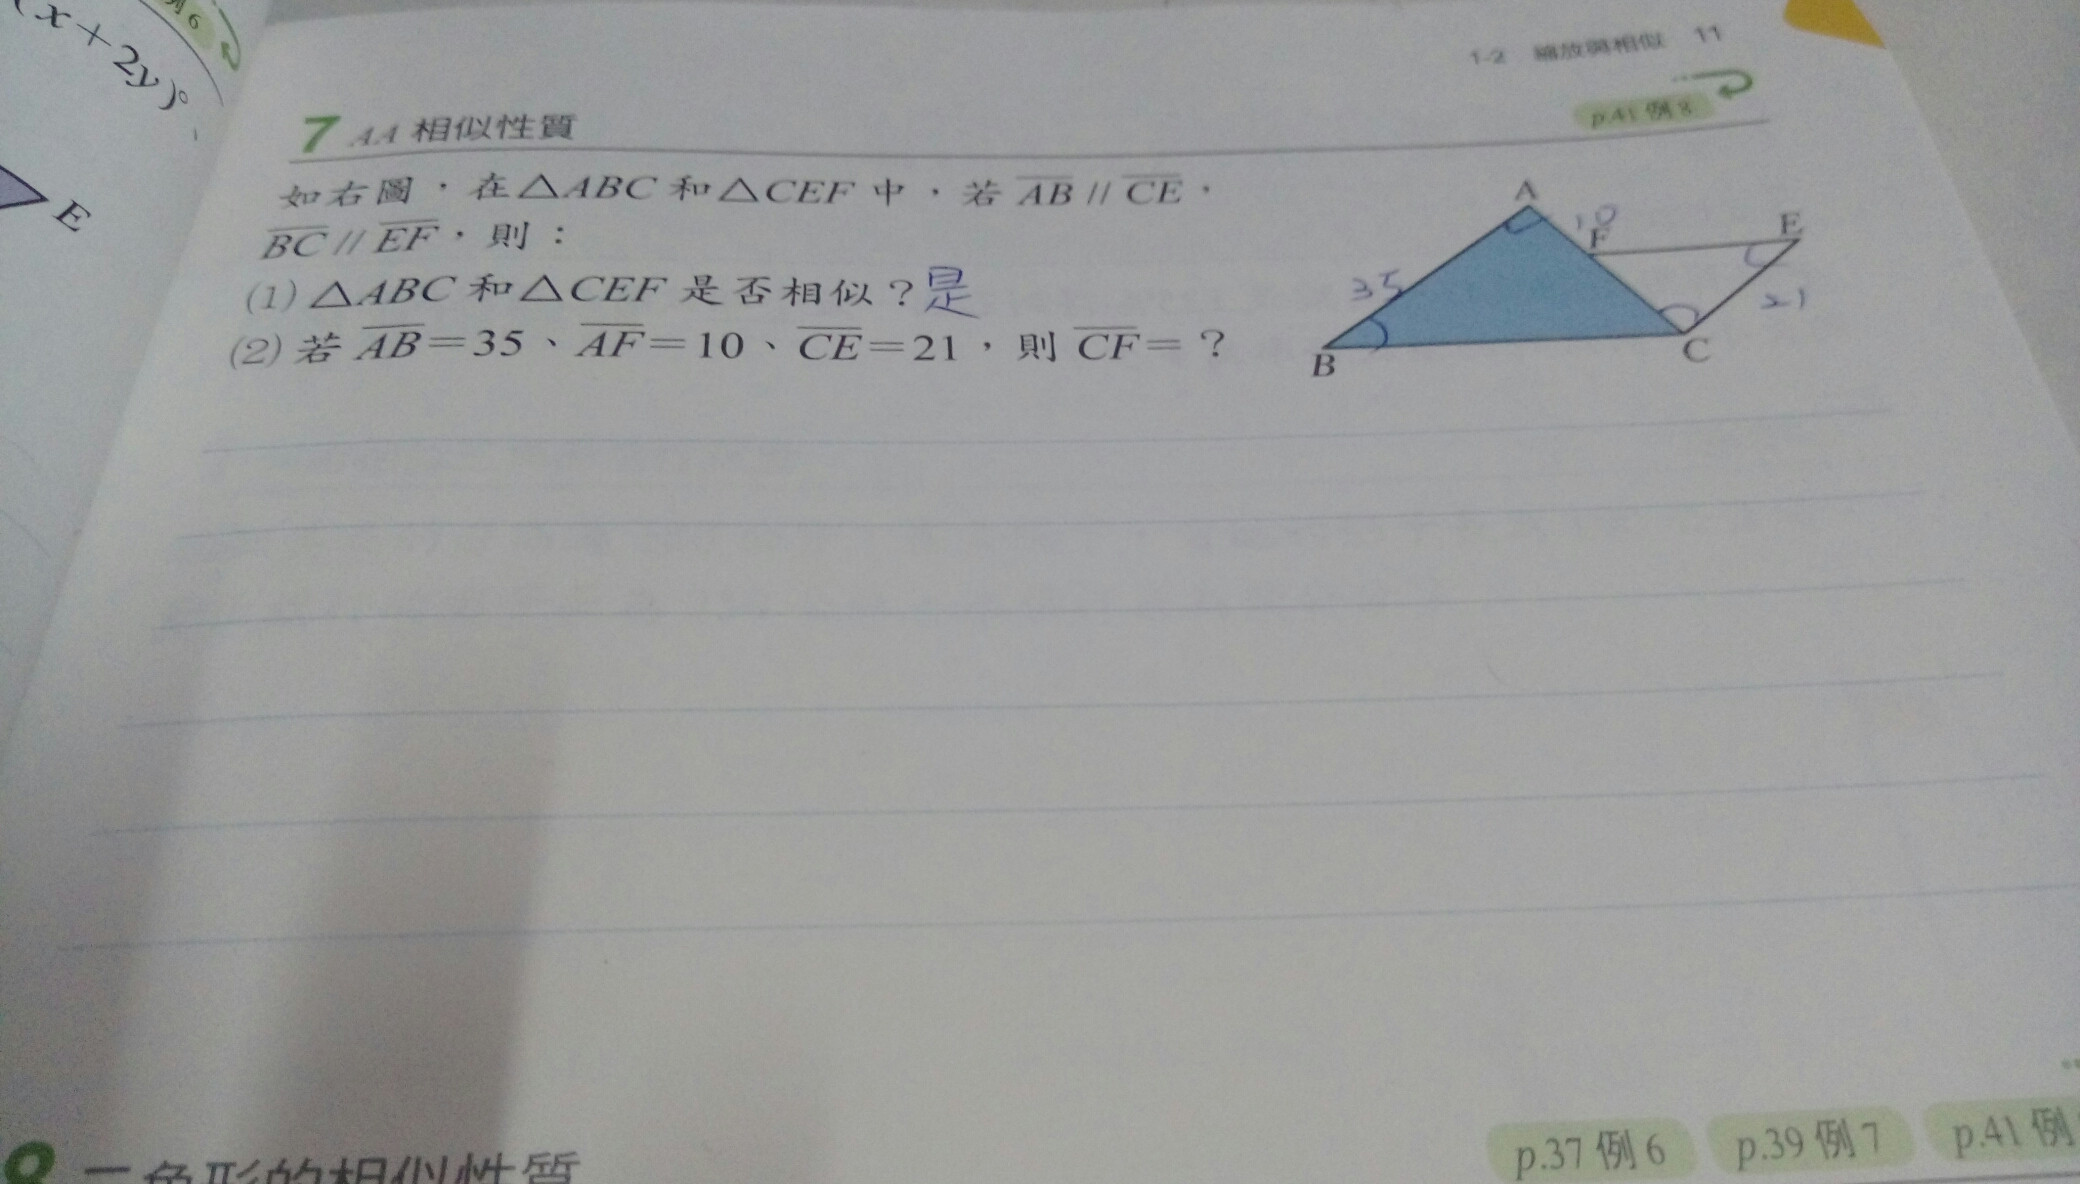 (x+2y)°
例6
E
1-2 縮放與相似 11
p.41 例8
7 AA 相似性質
如右圖,在△ABC 和△CEF 中,若 AB // CE,
BC // EF,則:
(1) △ABC 和△CEF 是否相似?是
(2) 若 AB=35、AF=10、CE=21,則 CF=?
A
10
F
E
35
21
B
C
p.37 例6
p.39 例7
p.41 例
8 三角形的相似性質